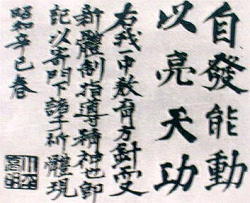 自發能動
以亮天功
右我中教育方針
新體制指導精神也即
記以寄門下諸子祈體現
昭和辛巳春